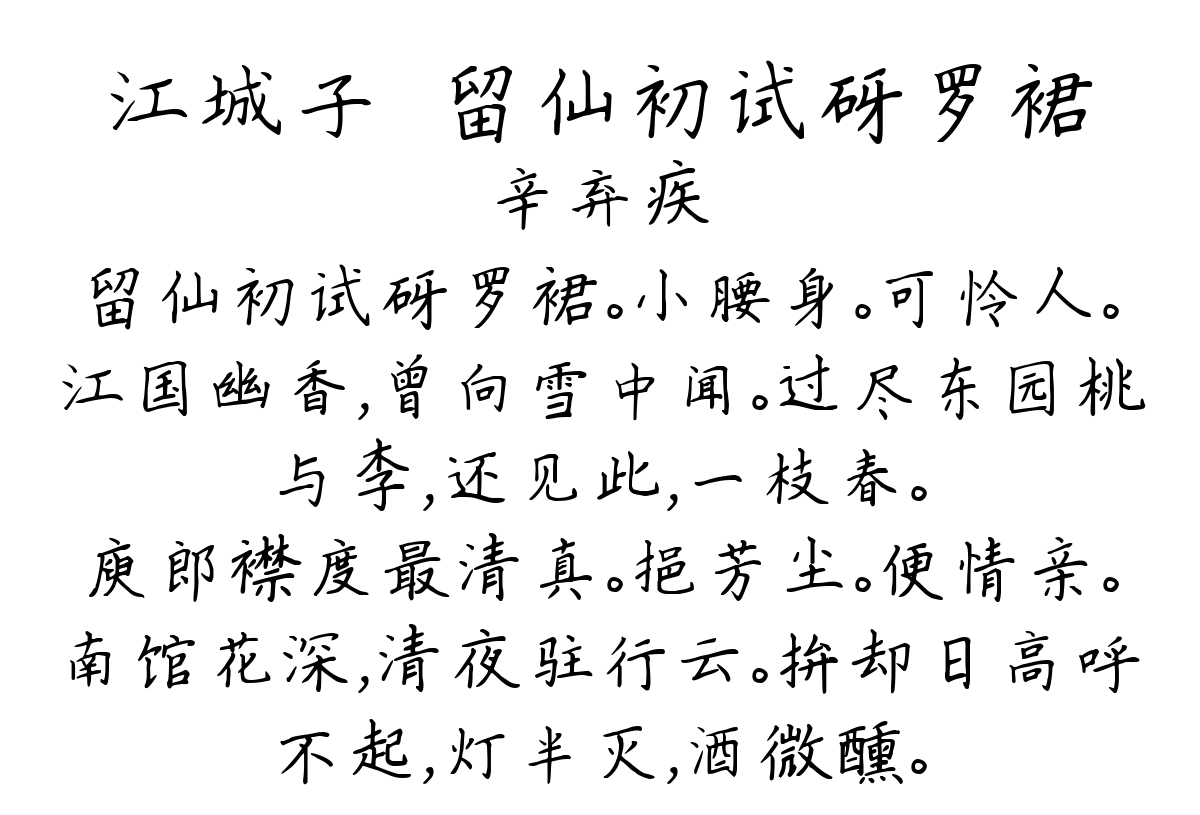 江城子 留仙初试砑罗裙
辛弃疾
留仙初试砑罗裙。小腰身。可怜人。
江国幽香,曾向雪中闻。过尽东园桃
与李,还见此,一枝春。
庾郎襟度最清真。挹芳尘。便情亲。
南馆花深,清夜驻行云。拚却日高呼
不起,灯半灭,酒微醺。